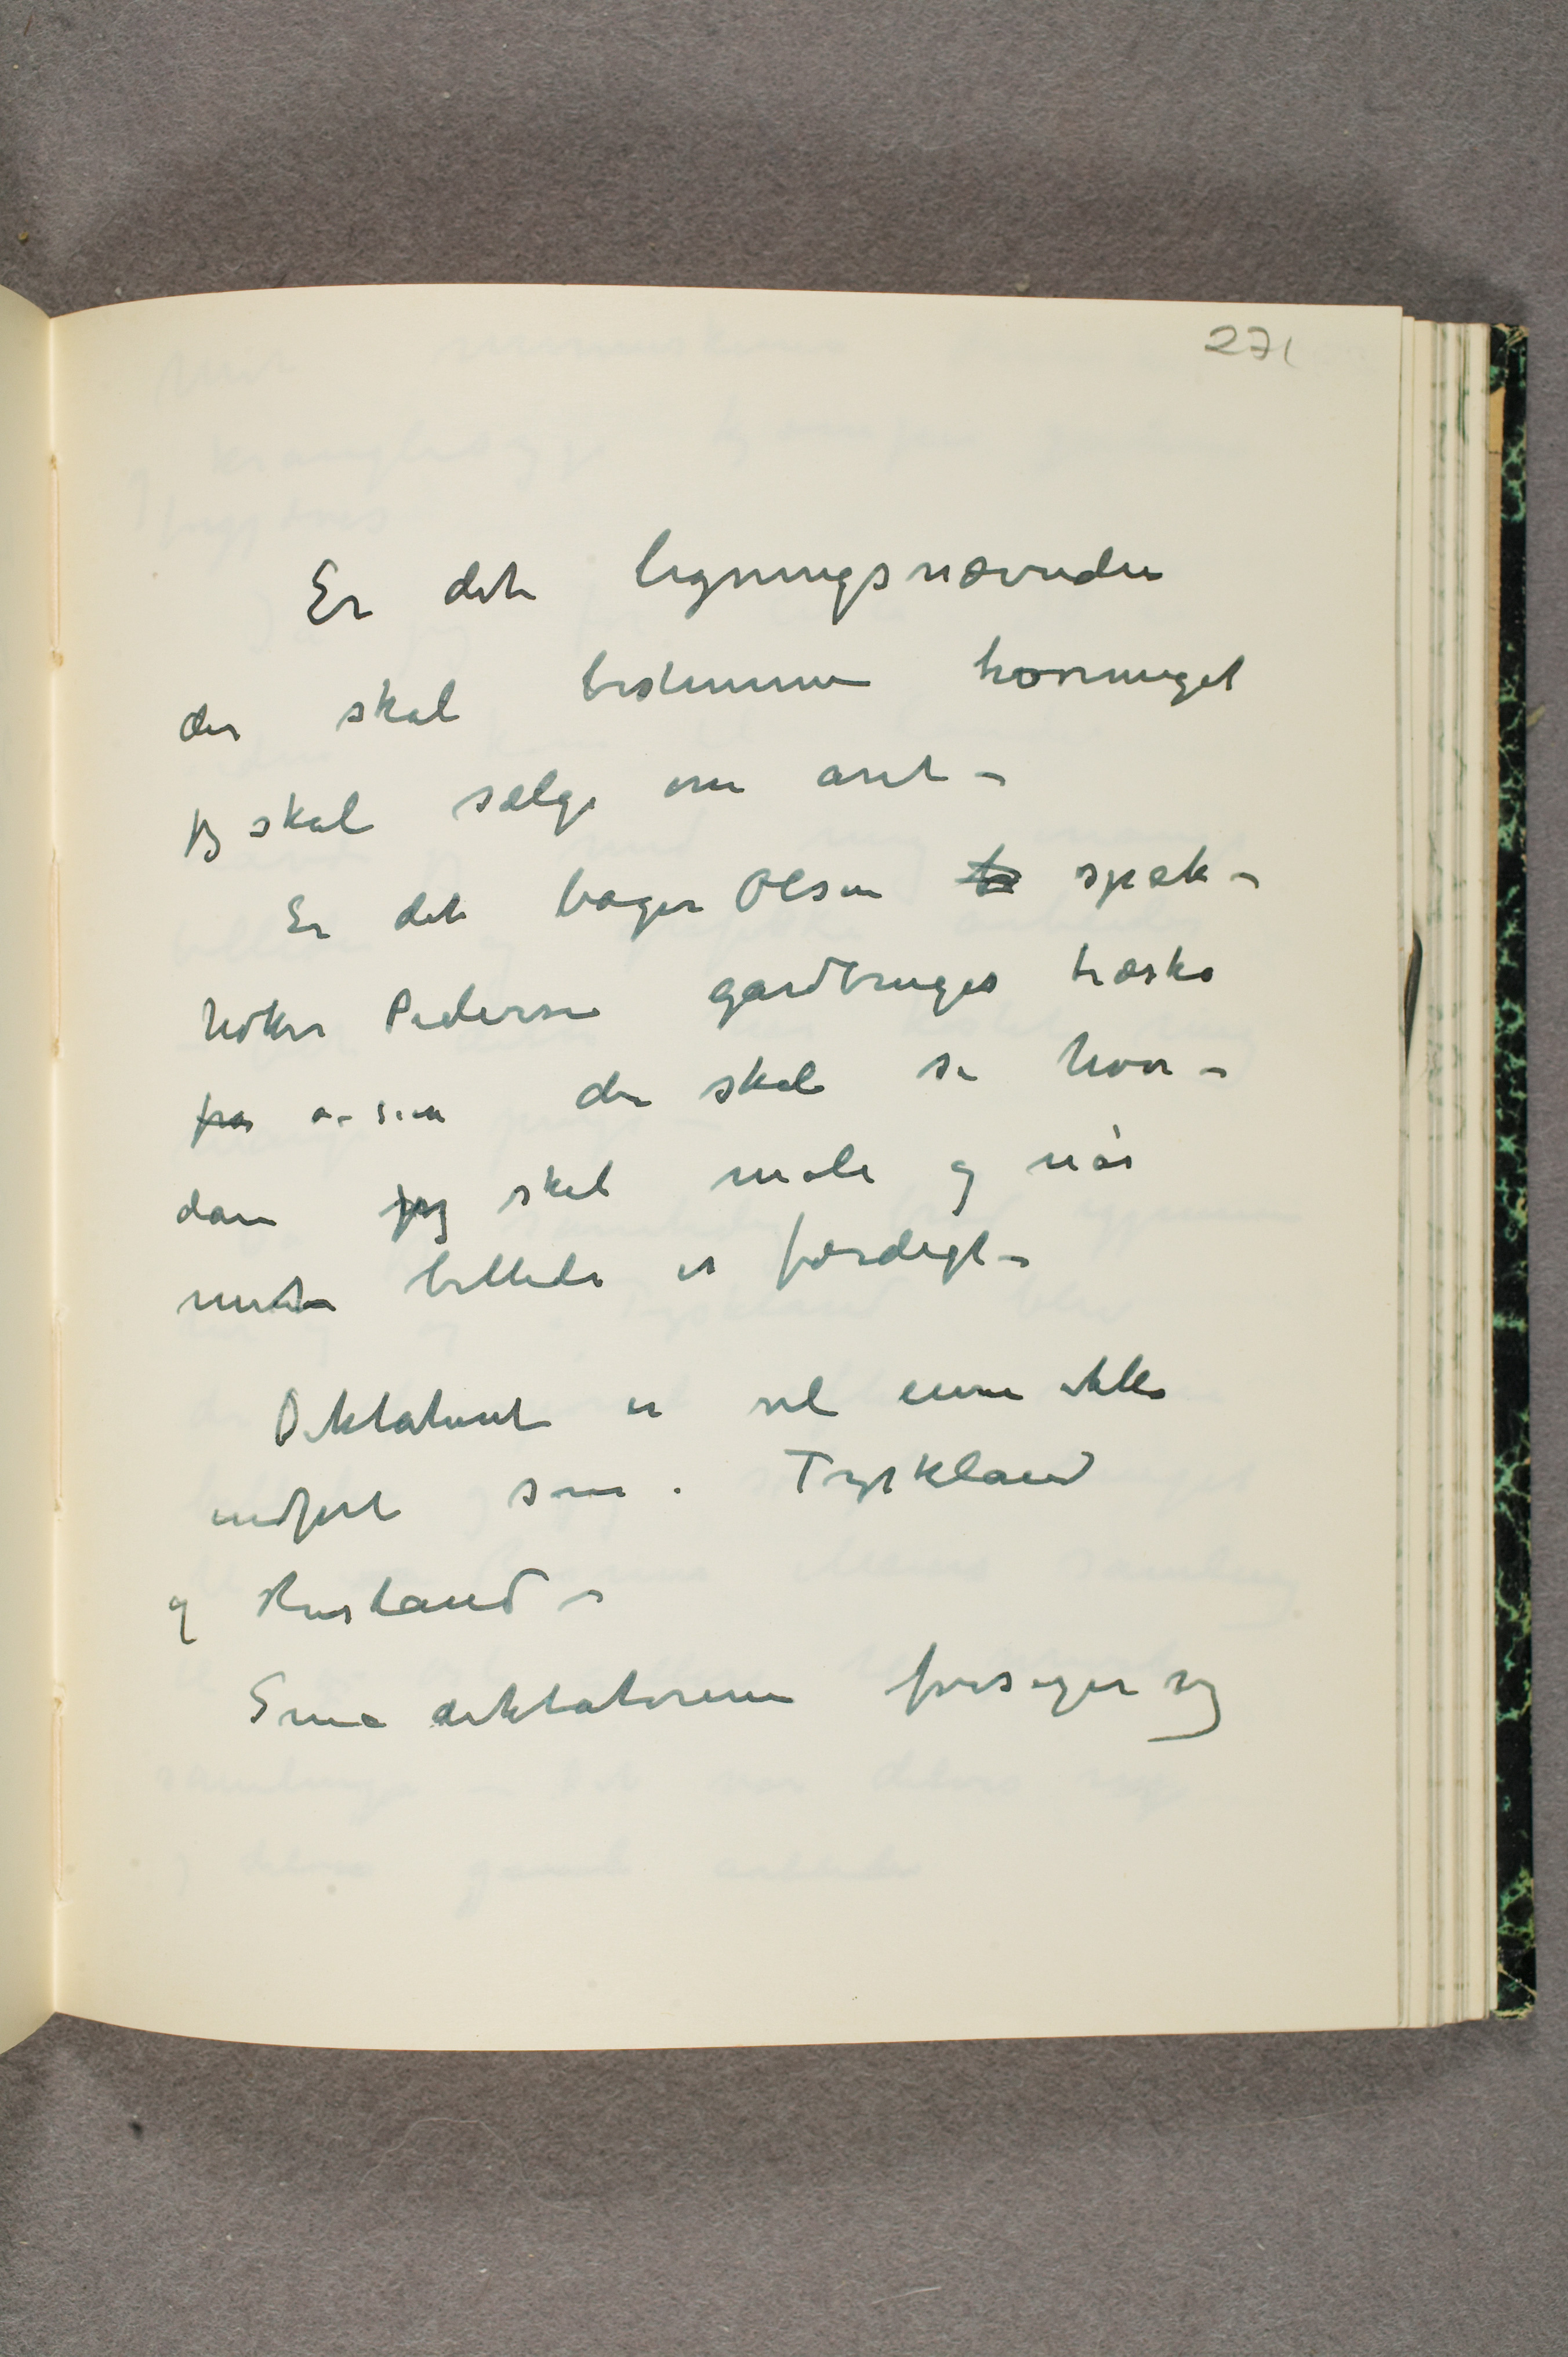 271
Er det ligningsnævnden
der skal bestemme hvormeget
jeg skal sælge om året –
Er det bager Olsen spæk-
høker Pedersen gårdbruger træsko
der skal se hvor-
dan jeg skal male og når
mit billede er færdigt –
Diktaturet er vel ennu ikke
indført som i Tyskland
og Rusland –
Små diktatorerne forsøger sig